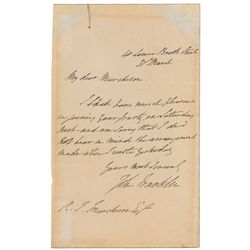 40 Lower Brook Street
31 March
My dear Murchison
I shall have much pleasure
in joining your party on Saturday
next and am sorry that I did
not bear in mind the arrangement
made when I wrote yesterday
Yours most sincerely
John Franklin
R. I. Murchison Esqr